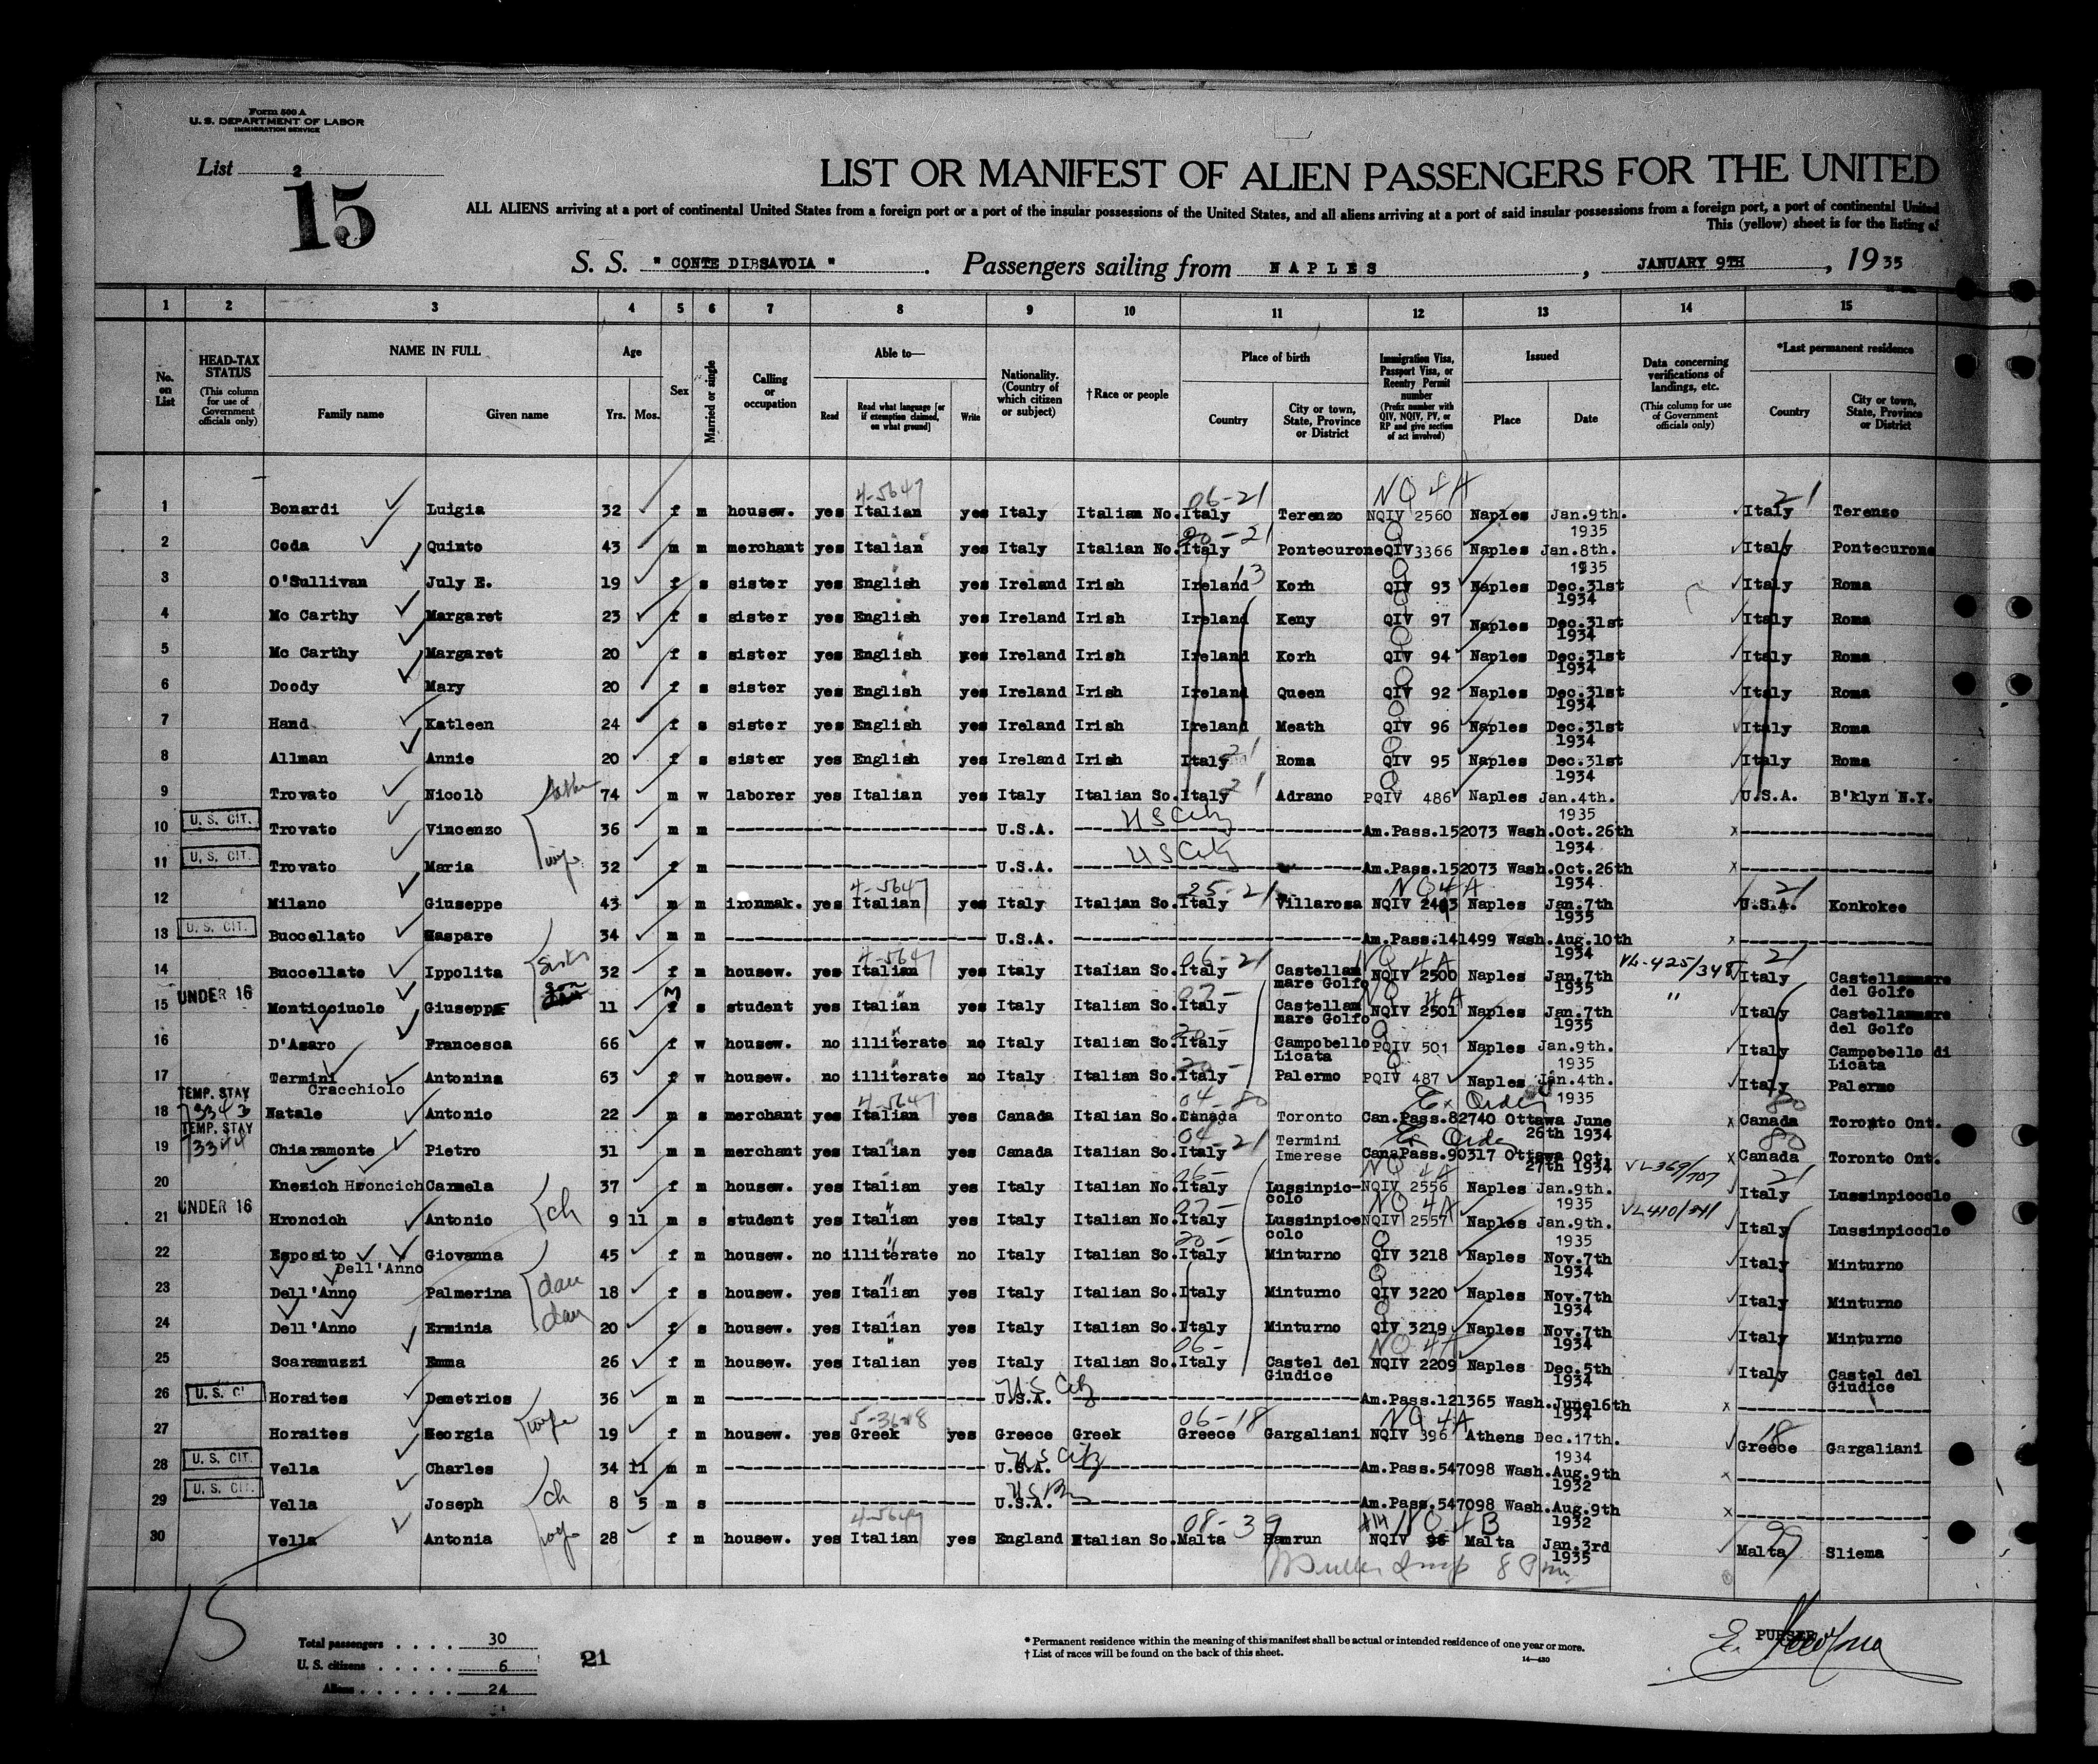 Form 500 A
U. S. DEPARTMENT OF LABOR
IMMIGRATION SERVICE
List 2
15
LIST OR MANIFEST OF ALIEN PASSENGERS FOR THE UNITED
ALL ALIENS arriving at a port of continental United States from a foreign port or a port of the insular possessions of the United States, and all aliens arriving at a port of said insular possessions from a foreign port, a port of continental United
This (yellow) sheet is for the listing of
S. S. " CONTE DI SAVOIA " . Passengers sailing from NAPLES , JANUARY 9TH , 19 35
1 2 3 4 5 6 7 8 9 10 11 12 13 14 15
No. on List
HEAD-TAX STATUS (This column for use of Government officials only)
NAME IN FULL Family name Given name
Age Yrs. Mos.
Sex
Married or single
Calling or occupation
Able to— Read Read what language [or if exemption claimed, on what ground] Write
Nationality. (Country of which citizen or subject)
†Race or people
Place of birth Country City or town, State, Province or District
Immigration Visa, Passport Visa, or Reentry Permit number (Prefix number with QIV, NQIV, PV, or RP and give section of act involved)
Issued Place Date
Data concerning verifications of landings, etc. (This column for use of Government officials only)
*Last permanent residence Country City or town, State, Province or District
4-5647 06-21 NQ 4A 21
1 Bonardi Luigia 32 f m housew. yes Italian yes Italy Italian No. Italy Terenzo NQIV 2560 Naples Jan.9th. 1935 Italy Terenzo
20-21
2 Coda Quinto 43 m m merchant yes Italian yes Italy Italian No. Italy Pontecurone QIV 3366 Naples Jan.8th. 1935 Italy Pontecurone
3 O'Sullivan July E. 19 f s sister yes English yes Ireland Irish Ireland 13 Korh QIV 93 Naples Dec.31st 1934 Italy Roma
4 Mc Carthy Margaret 23 f s sister yes English yes Ireland Irish Ireland Keny QIV 97 Naples Dec.31st 1934 Italy Roma
5 Mc Carthy Margaret 20 f s sister yes English yes Ireland Irish Ireland Korh QIV 94 Naples Dec.31st 1934 Italy Roma
6 Doody Mary 20 f s sister yes English yes Ireland Irish Ireland Queen QIV 92 Naples Dec.31st 1934 Italy Roma
7 Hand Katleen 24 f s sister yes English yes Ireland Irish Ireland Meath QIV 96 Naples Dec.31st 1934 Italy Roma
8 Allman Annie 20 f s sister yes English yes Ireland Irish Italy 21 Roma QIV 95 Naples Dec.31st 1934 Italy Roma
9 Trovato Nicolò 74 m w laborer yes Italian yes Italy Italian So. Italy 21 Adrano PQIV 486 Naples Jan.4th. 1935 U.S.A. B'klyn N.Y.
10 U. S. CIT. Trovato Vincenzo 36 m m U.S.A. Am.Pass.152073 Wash.Oct.26th 1934 x
11 U. S. CIT. Trovato Maria wife 32 f m U.S.A. Am.Pass.152073 Wash.Oct.26th 1934 x
4-5647 25-21 NQ 4A 21
12 Milano Giuseppe 43 m m ironmak. yes Italian yes Italy Italian So. Italy Villarosa NQIV Naples Jan.7th 1935 U.S.A. Konkokee
13 U. S. CIT. Buccellato Gaspare 34 m m U.S.A. Am.Pass.141499 Wash.Aug.10th 1934 x
4-5647 06-21 NQ 4A VL-425/348 21
14 Buccellato Ippolita 32 f m housew. yes Italian yes Italy Italian So. Italy Castellam mare Golfo NQIV 2500 Naples Jan.7th 1935 Italy Castellammare del Golfo
15 UNDER 16 Monticciuolo Giuseppe son 11 M s student yes Italian yes Italy Italian So. Italy Castellam mare Golfo NQIV 2501 Naples Jan.7th 1935 " Italy Castellammare del Golfo
16 D'Asaro Francesca 66 f w housew. no illiterate no Italy Italian So. Italy Campobello Licata PQIV 501 Naples Jan.9th. 1935 Italy Campobello di Licata
17 Termini Cracchiolo Antonina 63 f w housew. no illiterate no Italy Italian So. Italy Palermo PQIV 487 Naples Jan.4th. 1935 Italy Palermo
TEMP. STAY 4-5647 04-80 Ex Order 80
18 Natale Antonio 22 m s merchant yes Italian yes Canada Italian So. Canada Toronto Can.Pass.82740 Ottawa June 26th 1934 x Canada Toronto Ont.
TEMP. STAY 73344 04-21 80
19 Chiaramonte Pietro 31 m m merchant yes Italian yes Canada Italian So. Italy Termini Imerese CanaPass.90317 Ottawa Oct. 27th 1934 x Canada Toronto Ont.
20 Knezich Hroncich Carmela 37 f m housew. yes Italian yes Italy Italian No. Italy Lussinpic-colo NQIV 2556 Naples Jan.9th. 1935 Italy 21 Lussinpiccolo
21 UNDER 16 Hroncich Antonio ch 9 11 m s student yes Italian yes Italy Italian No. Italy Lussinpic-colo NQIV 2557 Naples Jan.9th. 1935 Italy Lussinpiccolo
22 Esposito Dell'Anno Giovanna 45 f m housew. no illiterate no Italy Italian So. Italy Minturno QIV 3218 Naples Nov.7th 1934 Italy Minturno
23 Dell'Anno Palmerina dau 18 f s housew. yes Italian yes Italy Italian So. Italy Minturno QIV 3220 Naples Nov.7th 1934 Italy Minturno
24 Dell'Anno Erminia dau 20 f s housew. yes Italian yes Italy Italian So. Italy Minturno QIV 3219 Naples Nov.7th 1934 Italy Minturno
25 Scaramuzzi Emma 26 f m housew. yes Italian yes Italy Italian So. Italy Castel del Giudice NQIV 2209 Naples Dec.5th 1934 Italy Castel del Giudice
26 Horaites Demetrios 36 m m U.S.A. Am.Pass.121365 Wash.June16th 1934 x
06-18 NQ 4A 18
27 Horaites Georgia wife 19 f m housew. yes Greek yes Greece Greek Greece Gargaliani NQIV 396 Athens Dec.17th. 1934 Greece Gargaliani
28 U. S. CIT. Vella Charles 34 11 m m U.S.A. Am.Pass.547098 Wash.Aug.9th 1932 x
29 U. S. CIT. Vella Joseph ch 8 5 m s U.S.A. Am.Pass.547098 Wash.Aug.9th 1932 x
4-5647 08-39 NQ 4 B
30 Vella Antonia 28 f m housew. yes Italian yes England Italian So. Malta Hamrun NQIV Malta Jan.3rd 1935 Malta Sliema
15
Total passengers . . . . 30
U. S. citizens . . . . . 6
Aliens . . . . . . 24
21
* Permanent residence within the meaning of this manifest shall be actual or intended residence of one year or more.
† List of races will be found on the back of this sheet.
14—430
PURSER